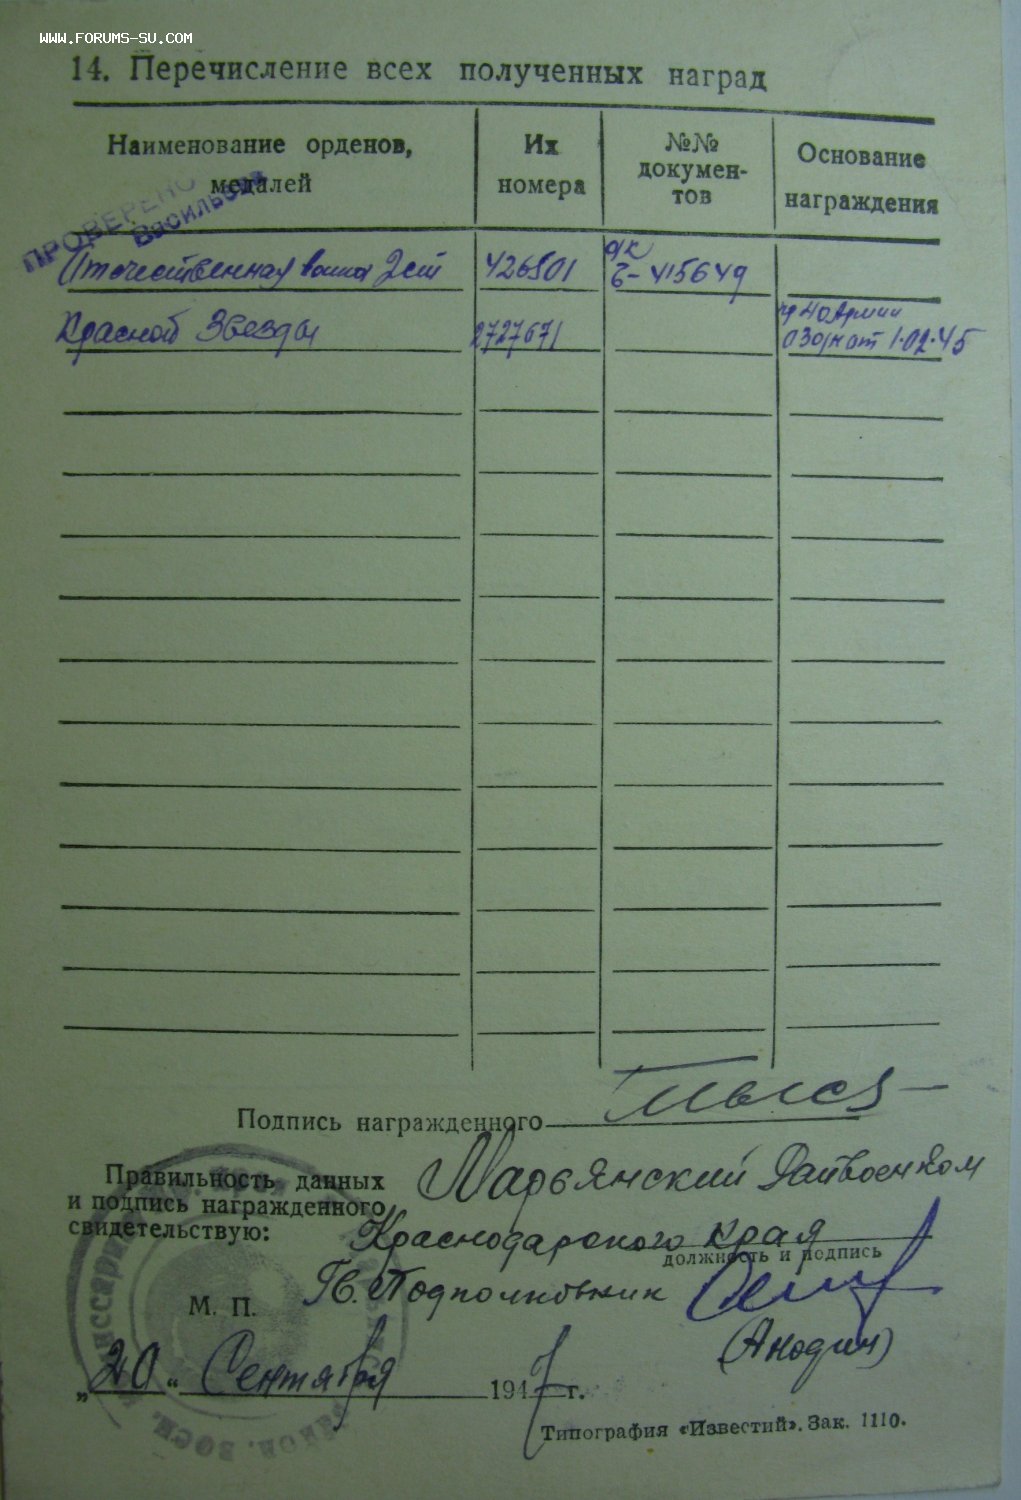 WWW.FORUMS-SU.COM
14. Перечисление всех полученных наград
Наименование орденов, медалей
Их номера
№№ докумен-тов
Основание награждения
ПРОВЕРЕНО
Васильева
Отечественная война 2 ст 426901 ок Б-415649
Красной Звезды 2727671 пр 40 Армии 030/н от 1.02.45
Подпись награжденного
Правильность данных
и подпись награжденного
свидетельствую:
Марьянский Райвоенком
Краснодарского края
должность и подпись
М. П. Гв. Подполковник
(Анодин)
„20“ Сентября 1947 г.
Типография «Известий». Зак. 1110.